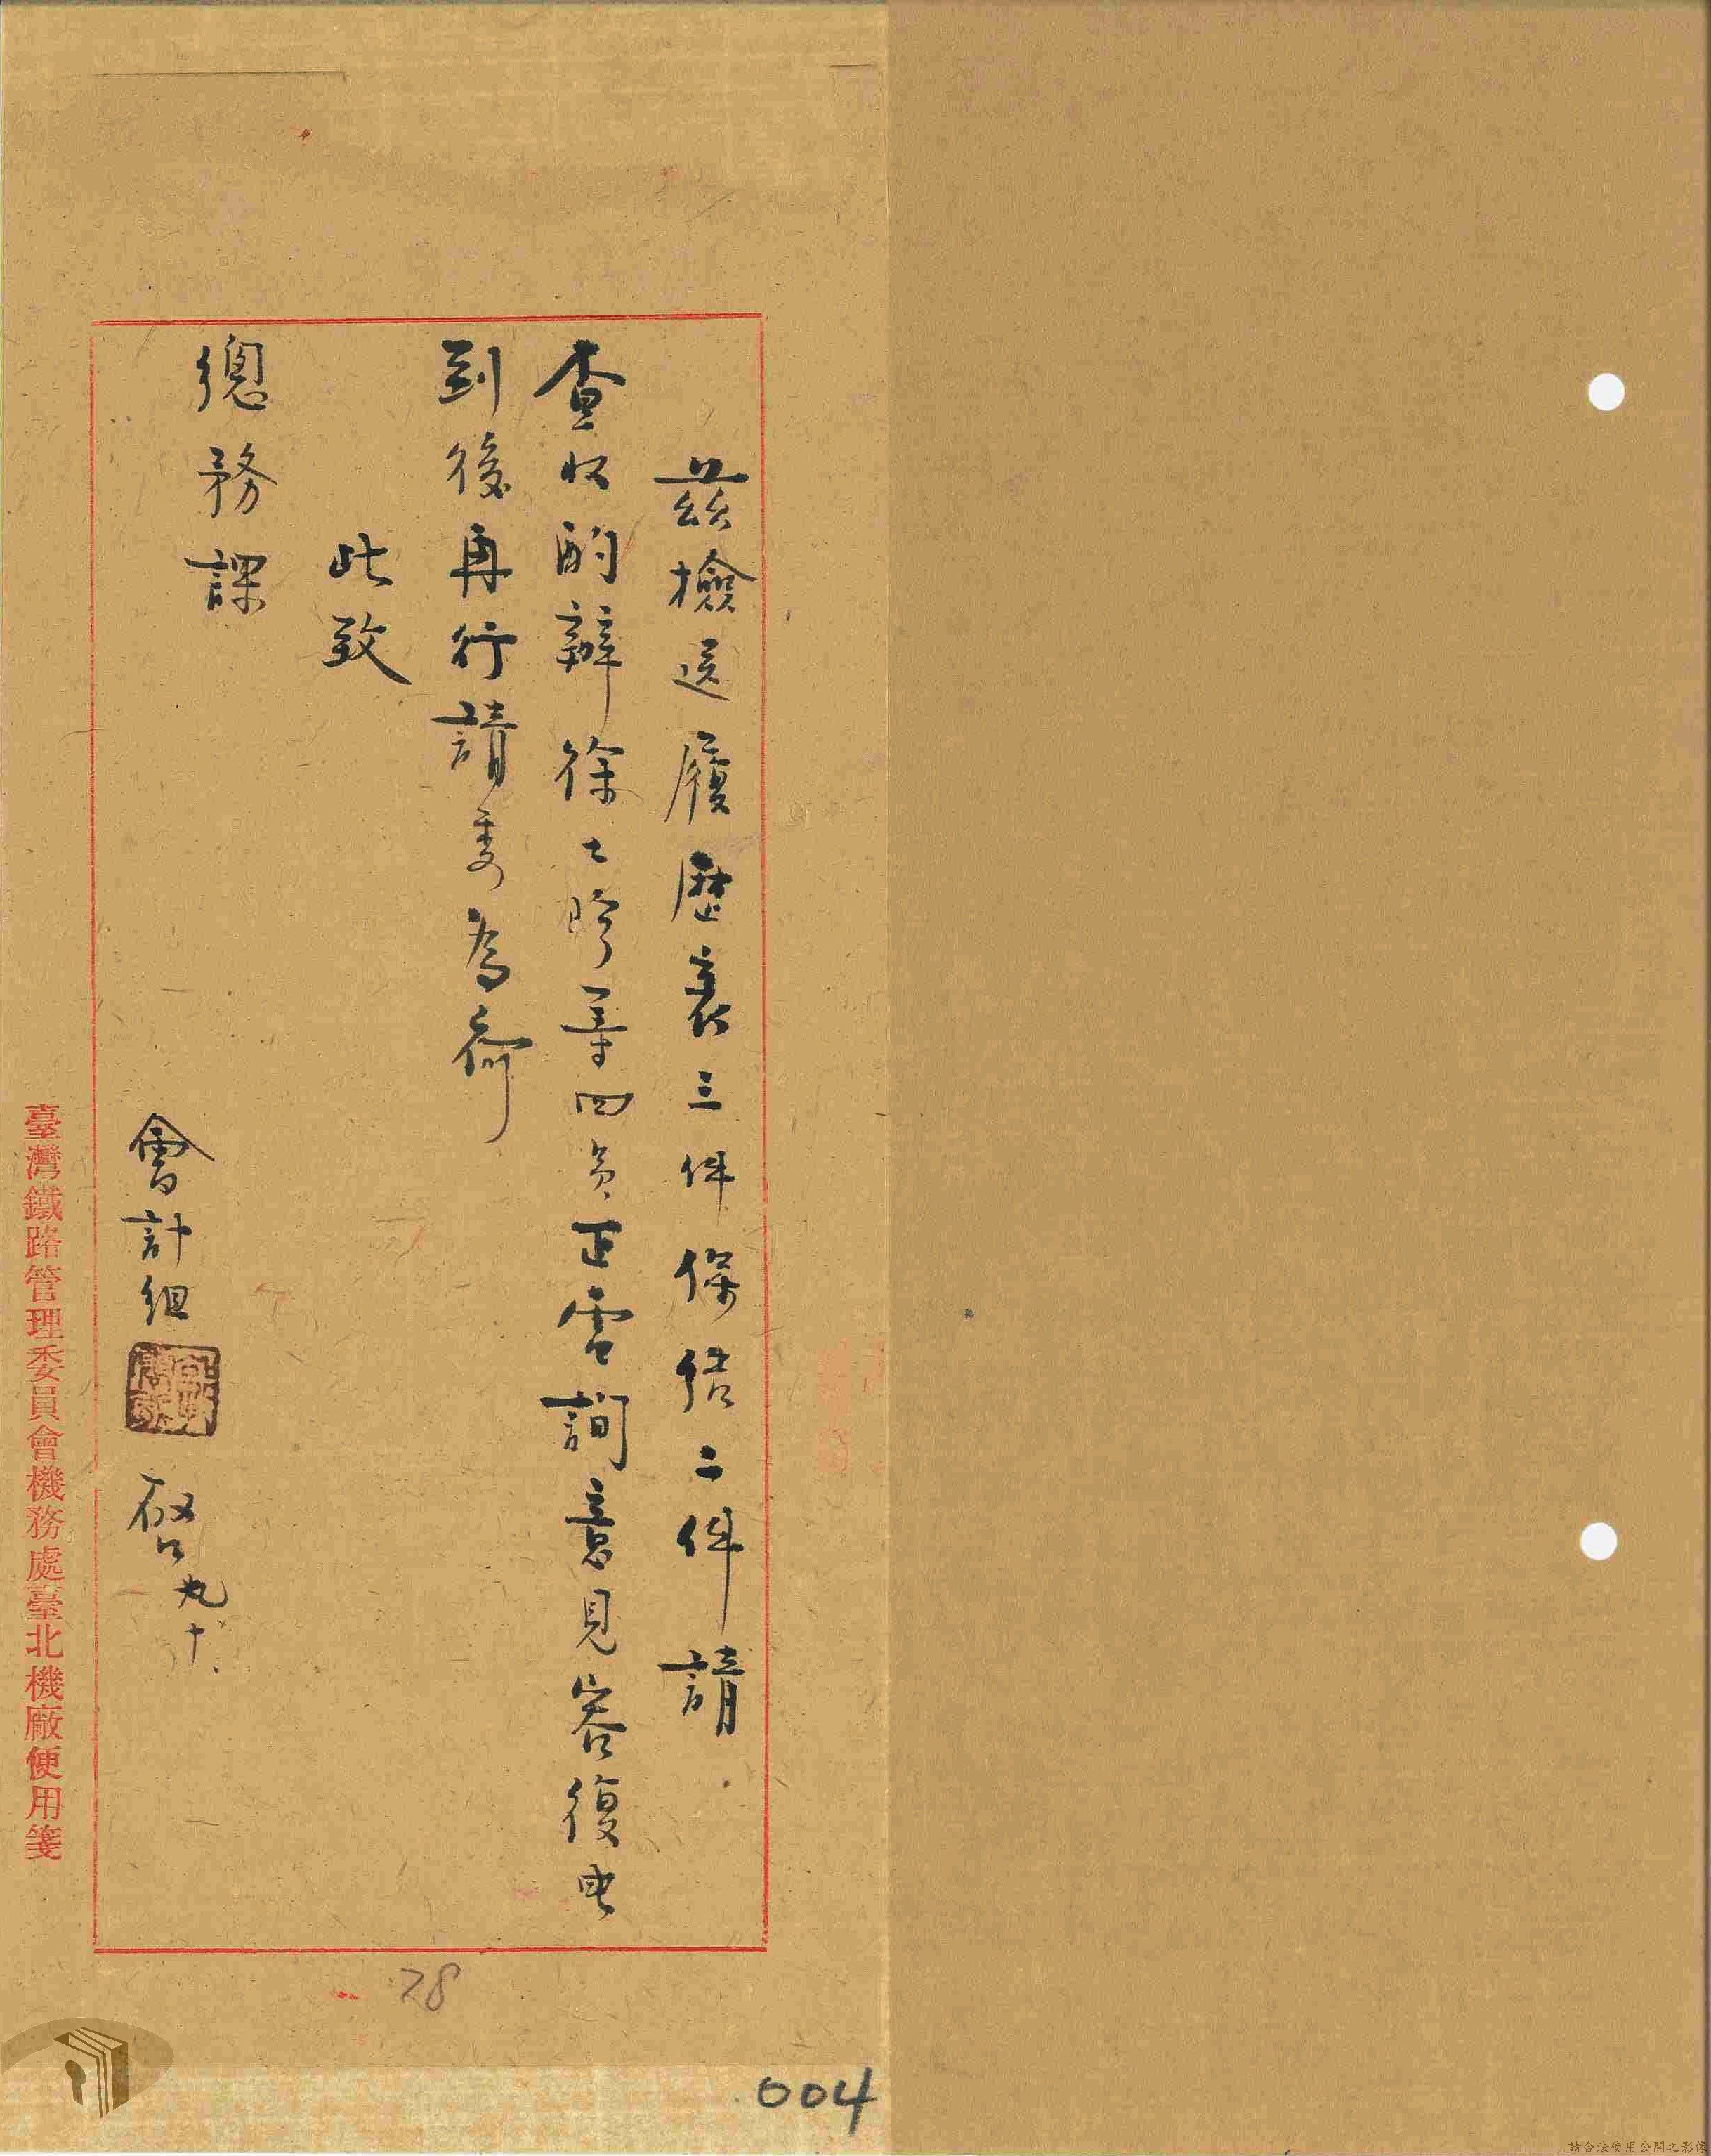 茲檢送履歷表三件保結二件請
查收酌辦徐士
等四員正電詢意見容復電
到後再行請委為荷
此致
總務課
會計組
啓九十、
臺灣鐵路管理委員會機務處臺北機廠便用箋
78
004
請合法使用公開之影像